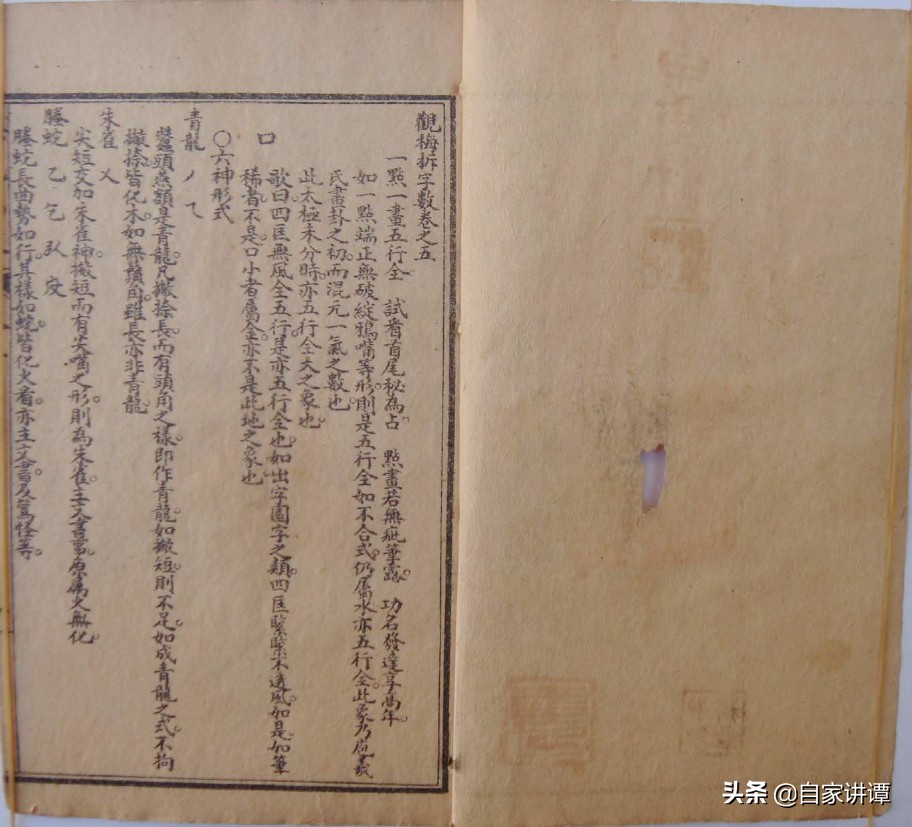 觀梅拆字數卷之五
一點一畫五行全　試看首尾秘為占　點畫若無疵筆露。　功名發達享高年。
如一點端正無破綻鴉嘴等形。則是五行全如不合式。仍屬水亦五行全。此象乃庖羲
氏畫卦之初。而混元一氣之數也。
此太極未分時。亦五行全大之象也。
口　歌曰四匡無風全五行。是亦五行全也。如出字園字之類。四匡緊緊不透風。如是。如筆
稀者。不是。口小者屬金。亦不是此地之象也。
〇六神形式
青龍 丿 乀
蠶頭燕額是青龍。凡撇捺長而有頭角之樣。即作青龍。如撇短。則不足。如成青龍之式。不拘
撇捺。皆化木。如無鬚角。雖長亦非青龍。
朱雀 乂
尖短交加朱雀神。撇短而有尖嘴之形。則為朱雀。主文書事。原屬火無化。
螣蛇 乙 乞
螣蛇長曲勢如行。其樣如蛇。皆化火看。亦主文書及驚怪等。
头条 @自家讲谭